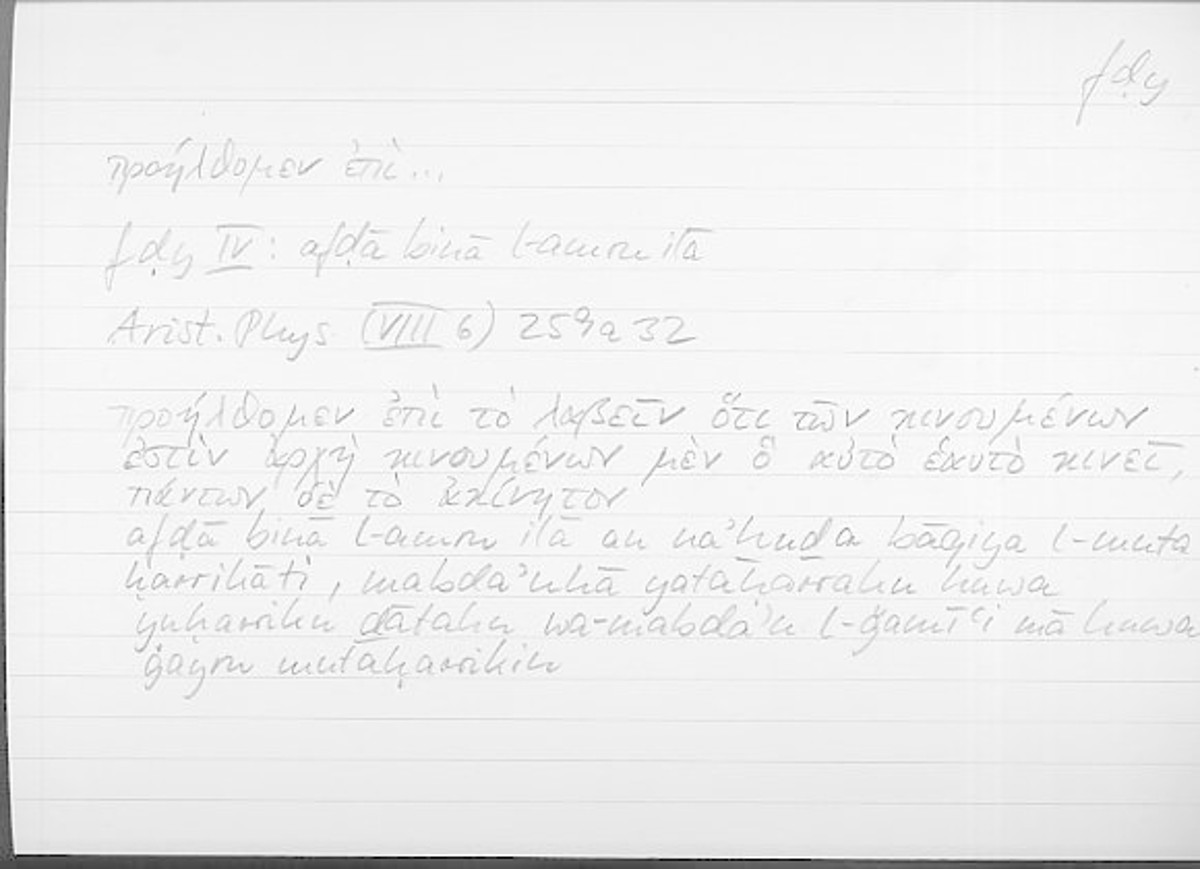 fḍy
προήλθομεν ἐπὶ...
fḍy IV: afḍā binā l-amru ilā
Arist. Phys (VIII 6) 259a32
προήλθομεν ἐπὶ τὸ λαβεῖν ὅτι τῶν κινουμένων
ἐστὶν ἀρχὴ κινουμένων μὲν ὃ αὐτὸ ἑαυτὸ κινεῖ,
πάντων δὲ τὸ ἀκίνητον
afḍā binā l-amru ilā an na’ḫuḏa bāqiya l-muta
ḥarrikāti, mabda’uhā yataḥarraku huwa
yuḥarriku ḏātahu wa-mabda’u l-ǧamī‘i mā huwa
ġayru mutaḥarrikin